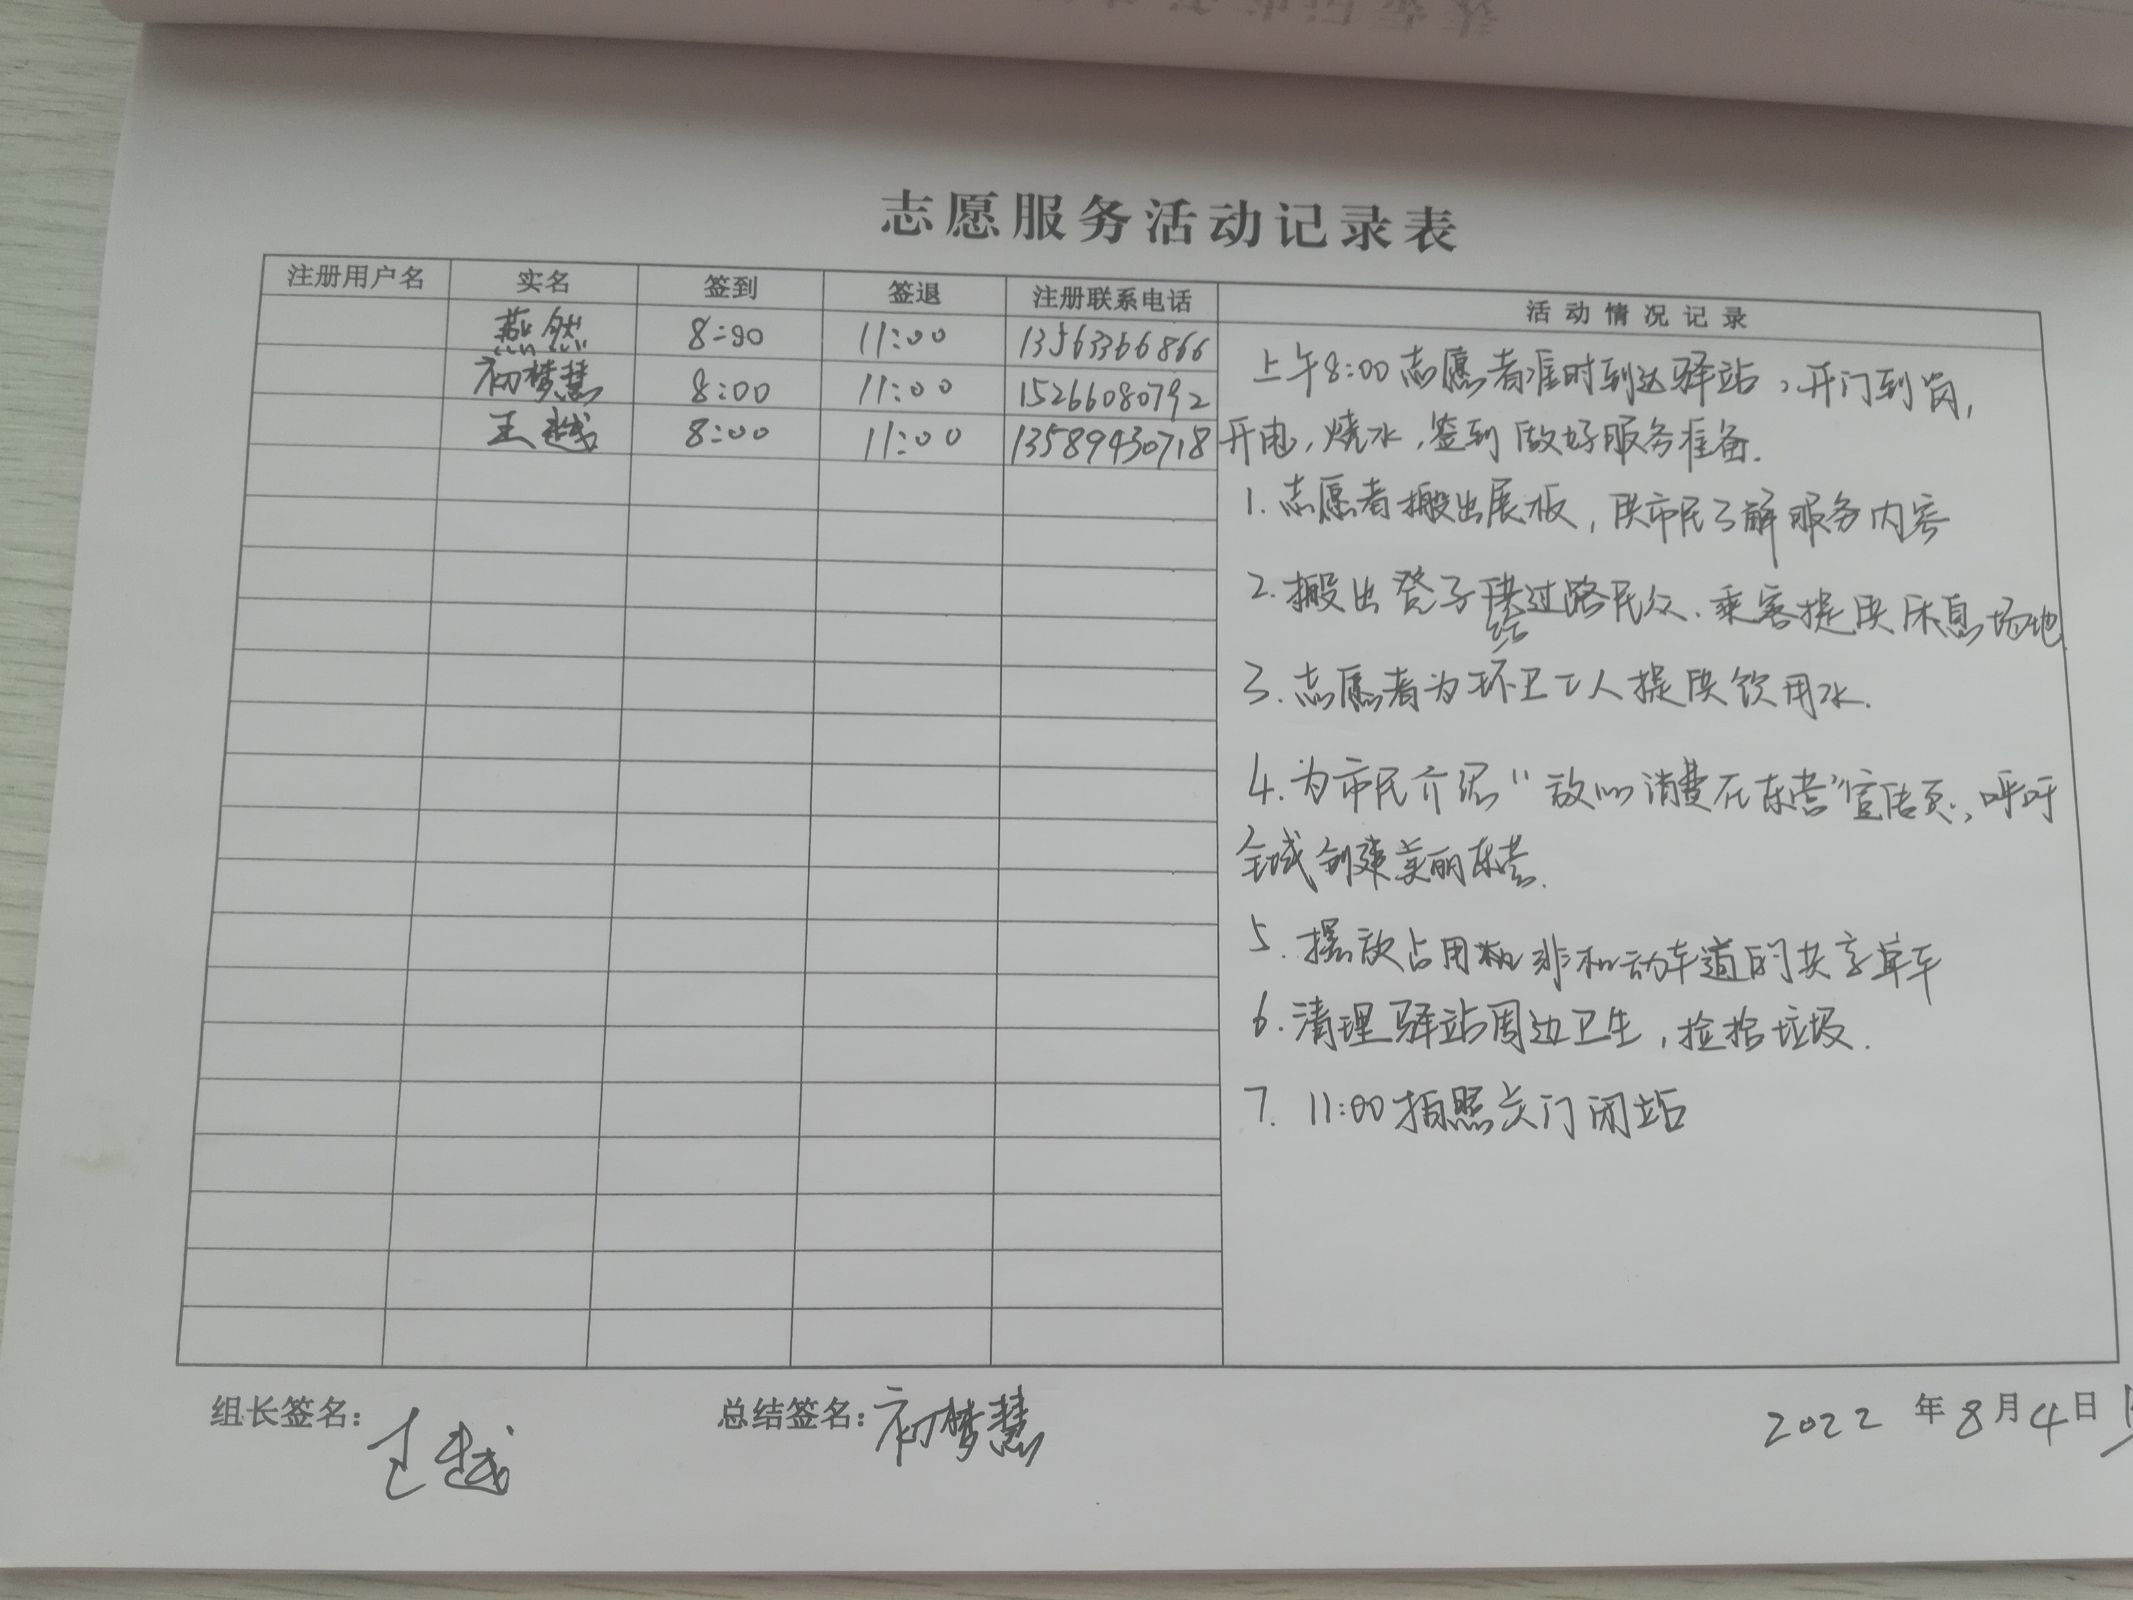 志愿服务活动记录表
注册用户名 实名 签到 签退 注册联系电话 活动情况记录
燕然 8:00 11:00 13563366866
初梦慧 8:00 11:00 15266080792
王越 8:00 11:00 13589430718
上午8:00志愿者准时到达驿站,开门到岗,
开电,烧水,签到做好服务准备.
1.志愿者搬出展板,供市民了解服务内容
2.搬出凳子给过路民众、乘客提供休息场地
3.志愿者为环卫工人提供饮用水.
4.为市民介绍“放心消费在东营”宣传页,呼吁
全域创建美丽东营.
5.摆放占用非机动车道的共享单车
6.清理驿站周边卫生,捡拾垃圾.
7. 11:00拍照关门闭站
组长签名:王越 总结签名:初梦慧 2022年8月4日